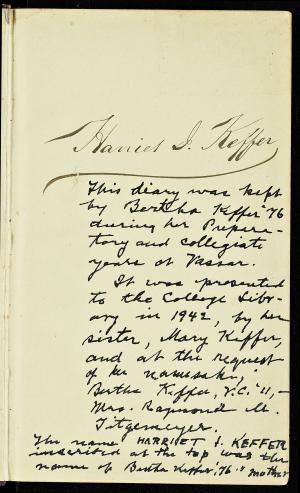 Harriet I. Keffer
This diary was kept
by Bertha Keffer '76
during her Prepara-
tory and collegiate
years at Vassar.
It was presented
to the College Libr-
ary in 1942, by her
sister, Mary Keffer,
and at the request
of her namesake,
Bertha Keffer, V.C. '11,-
Mrs. Raymond M.
Titgemeyer.
The name HARRIET I. KEFFER
inscribed at the top was the
name of Bertha Keffer, '76's mother